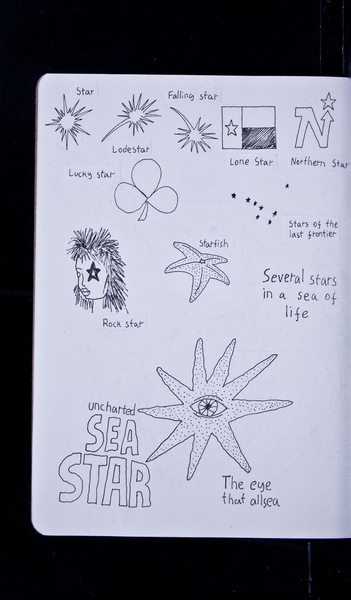 Star
Falling star
Lodestar
N
Lone Star
Northern Star
Lucky star
Stars of the
last frontier
Starfish
Several stars
in a sea of
life
Rock star
uncharted
SEA
STAR
The eye
that allsea